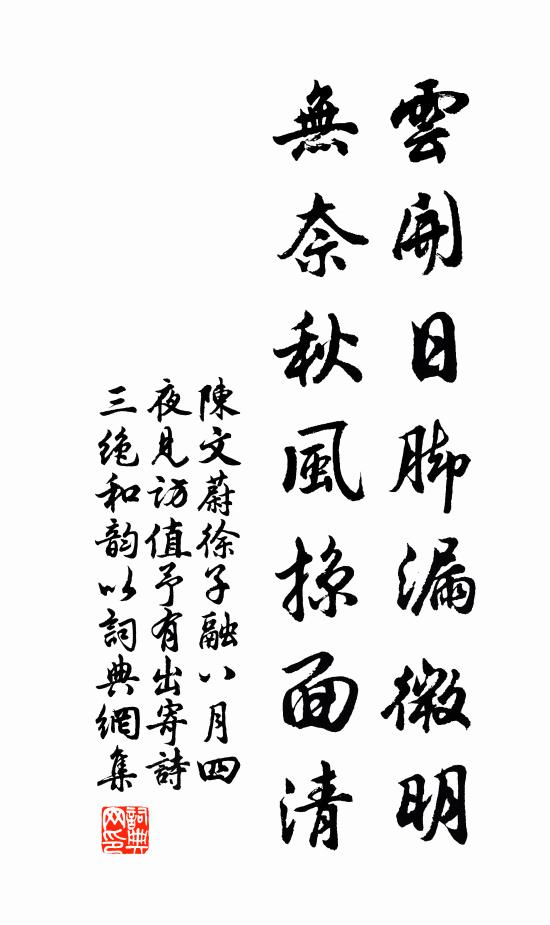 雲開日脚漏微明
無奈秋風掠面清
陳文蔚徐子融八月四
夜見訪值予有出寄詩
三绝和韵以詞典網集
詞典
网印